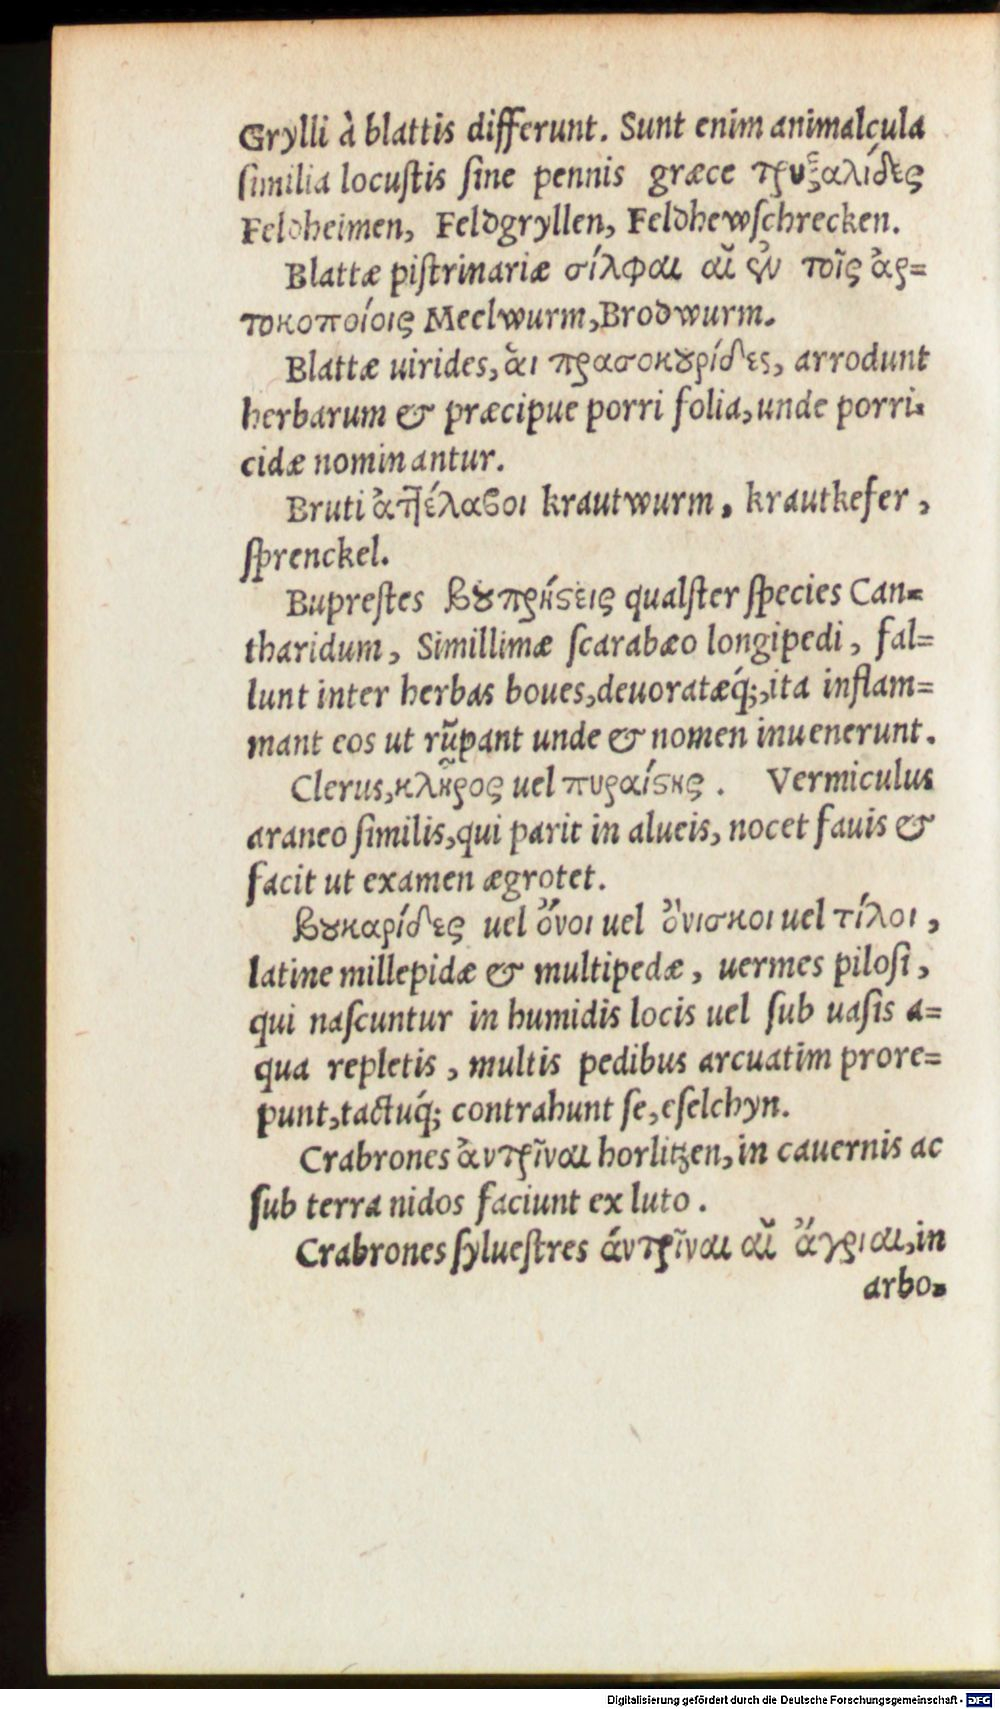 Grylli à blattis differunt. Sunt enim animalcula
ſimilia locuſtis ſine pennis græce τρυξαλίδες
Feldheimen, Feldgryllen, Feldhewſchrecken.
Blattæ piſtrinariæ σίλφαι αἳ ἐν τοῖς ἀρ=
τοκοποίοις Meelwurm,Brodwurm.
Blattæ uirides,ἃι πρασοκουρίδες, arrodunt
herbarum & præcipue porri folia,unde porri-
cidæ nominantur.
Bruti ἀττέλαβοι krautwurm, krautkefer,
ſprenckel.
Bupreſtes βουπρήστεις qualſter ſpecies Can=
tharidum, Simillimæ ſcarabæo longipedi, fal=
lunt inter herbas boues,deuoratæq́;,ita inflam=
mant eos ut rũpant unde & nomen inuenerunt.
Clerus,κλῆρος uel πυραίστης. Vermiculus
araneo ſimilis,qui parit in alueis, nocet fauis &
facit ut examen ægrotet.
βουκαρίδες uel ὄνοι uel ὄνισκοι uel τίλοι,
latine millepidæ & multipedæ, uermes piloſi,
qui naſcuntur in humidis locis uel ſub uaſis a=
qua repletis, multis pedibus arcuatim prore=
punt,tactuq́; contrahunt ſe,eſelchyn.
Crabrones ἀντρῖναι horlitzen,in cauernis ac
ſub terra nidos faciunt ex luto.
Crabrones ſylueſtres ἀντρῖναι αἳ ἄγριαι,in
arbo-
Digitalisierung gefördert durch die Deutsche Forschungsgemeinschaft - DFG